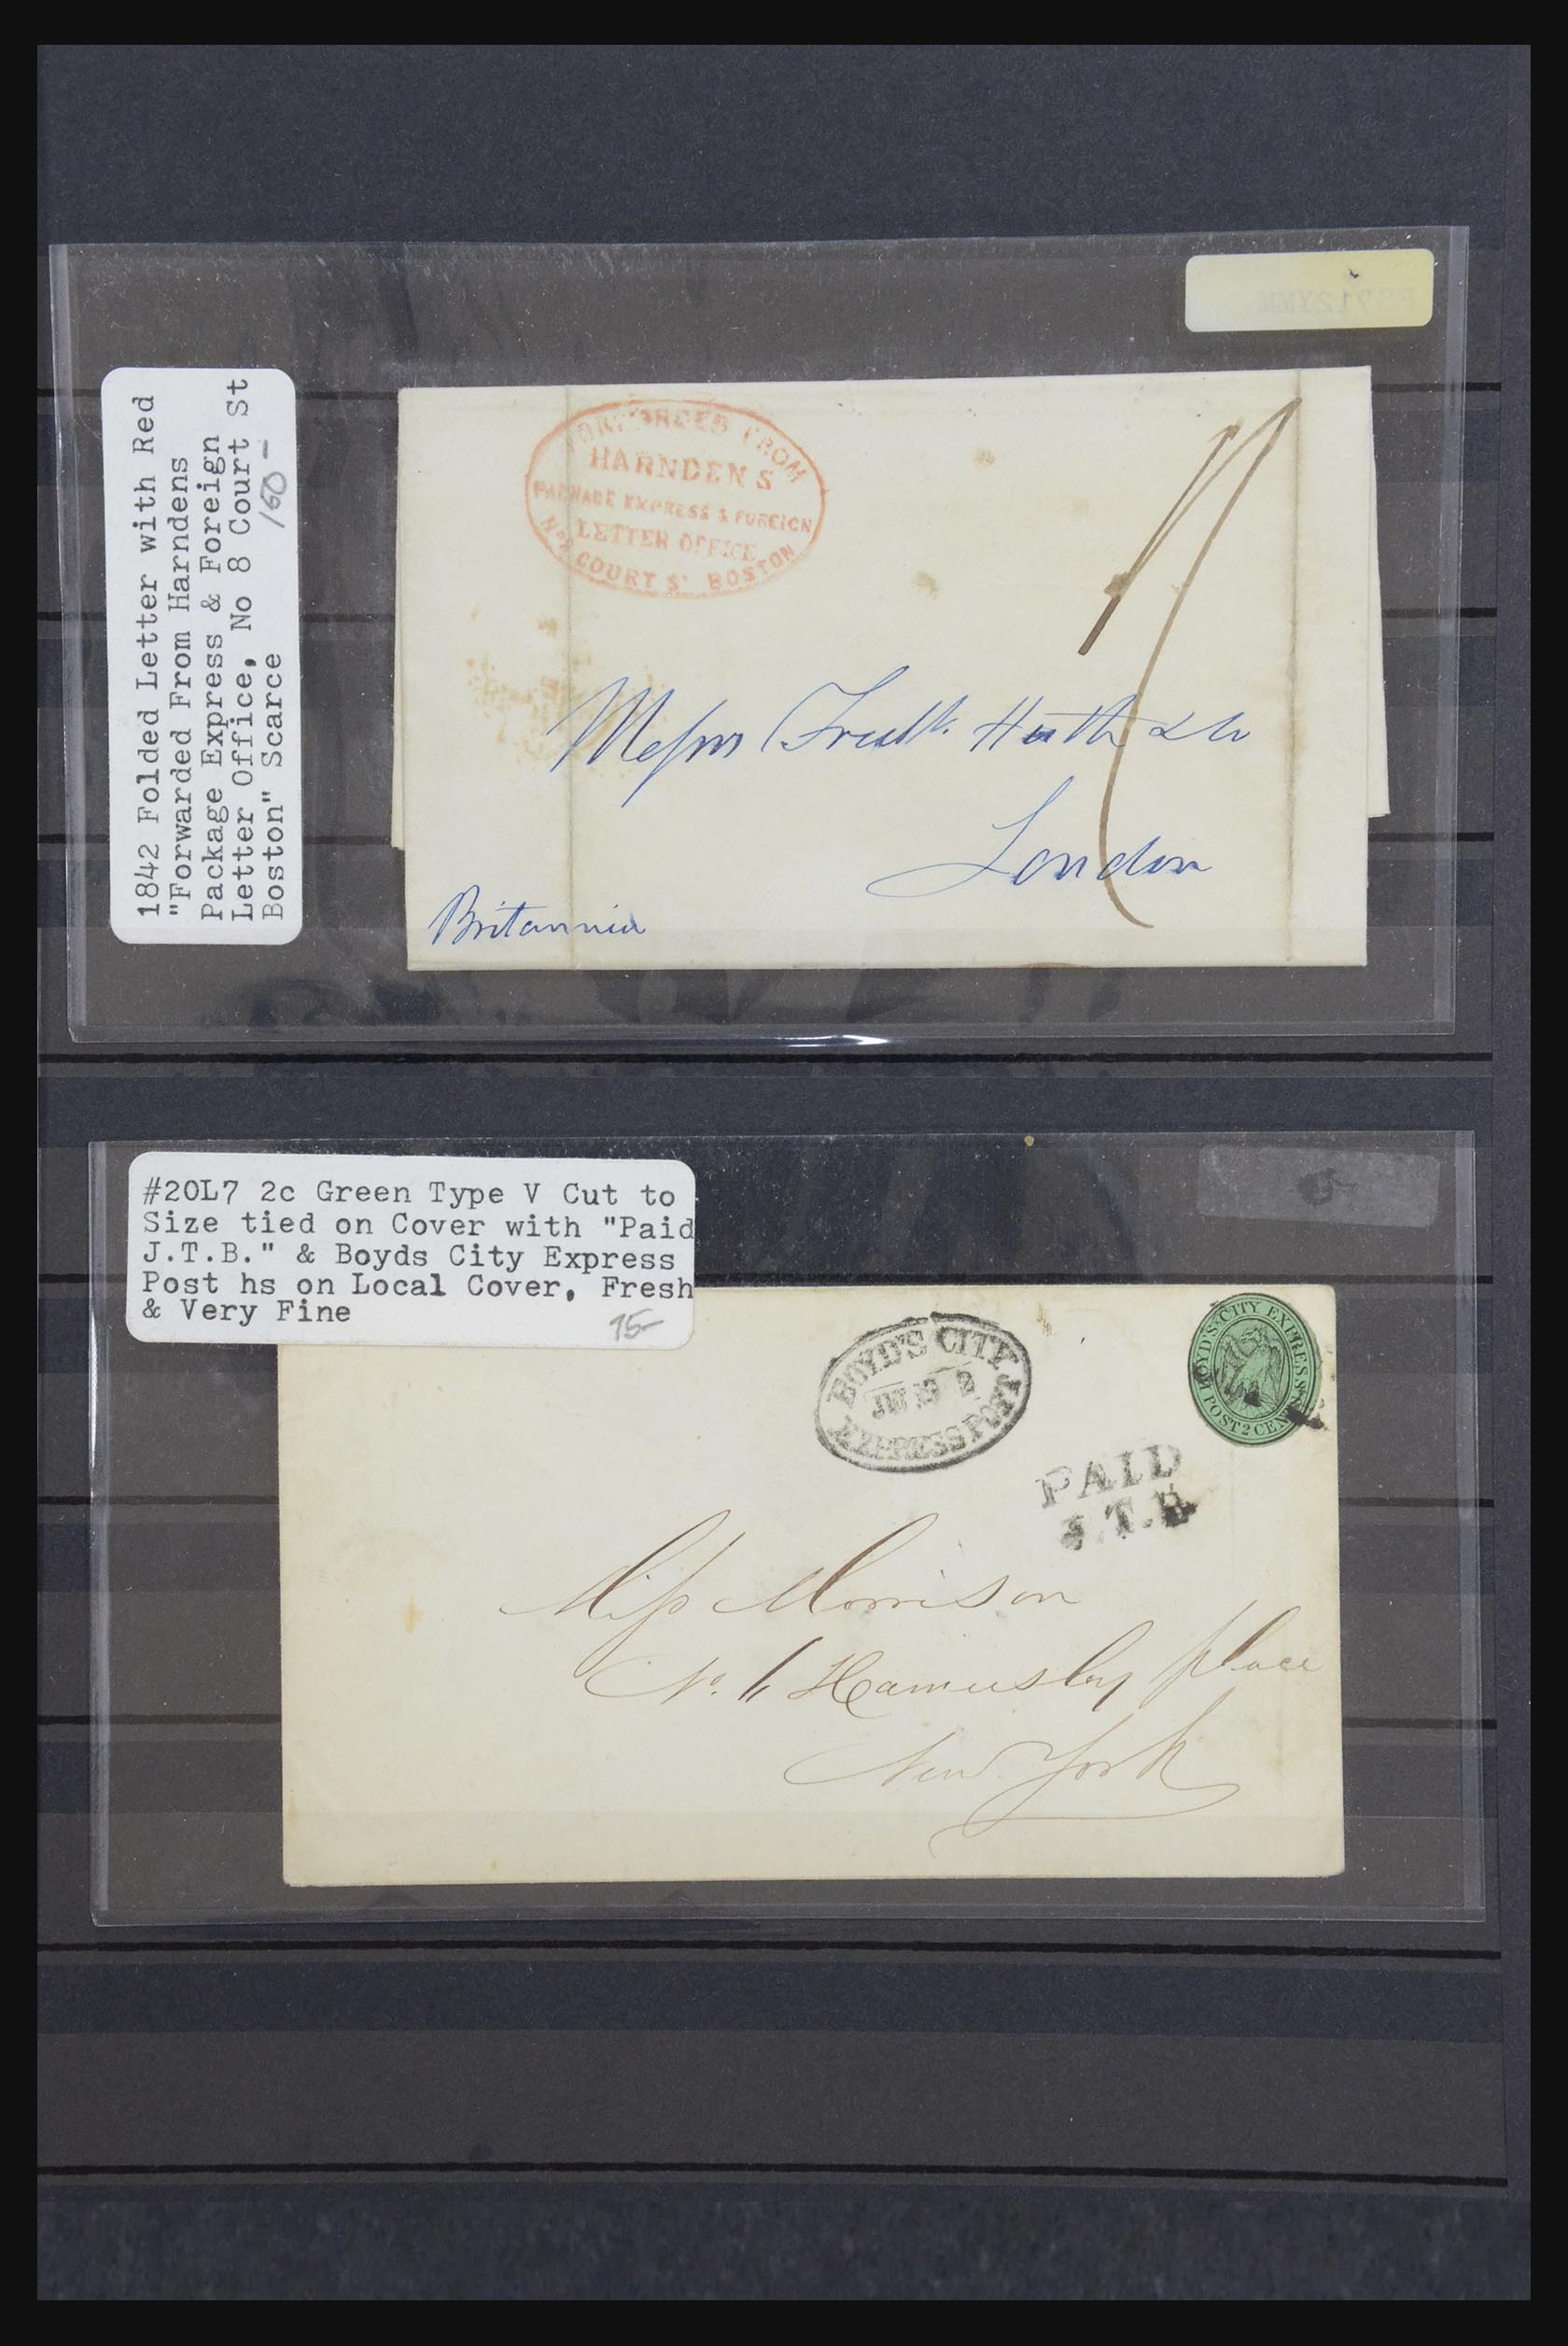 1842 Folded Letter with Red
"Forwarded From Harndens
Package Express & Foreign
Letter Office, No 8 Court St
Boston" Scarce
160-
FORWARDED FROM
HARNDEN'S
PACKAGE EXPRESS & FOREIGN
LETTER OFFICE
No 8 COURT ST BOSTON
Messrs Fredk. Huth & Co
London
Britannia
#20L7 2c Green Type V Cut to
Size tied on Cover with "Paid
J.T.B." & Boyds City Express
Post hs on Local Cover, Fresh
& Very Fine
75-
BOYD'S CITY
EXPRESS POST
BOYD'S CITY EXPRESS
POST 2 CENTS
PAID
J.T.B.
Miss Morrison
No. 11 Hamersley place
New York